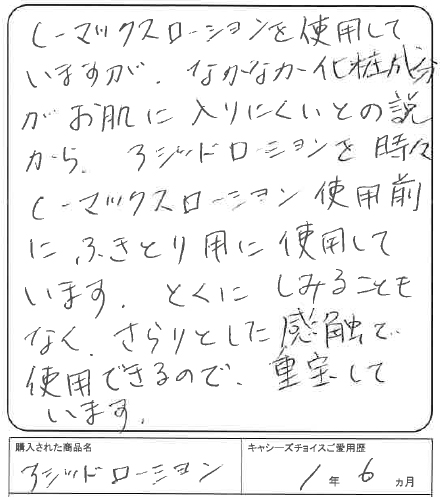 C-マックスローションを使用して
いますが、なかなか化粧成分
がお肌に入りにくいとの説
から、3ジッドローションを時々
C-マックスローション使用前
に、ふきとり用に使用して
います。とくにしみることも
なく、さらりとした感触で
使用できるので、重宝して
います。
購入された商品名
キャシーズチョイスご愛用歴
3ジッドローション
1年6ヵ月